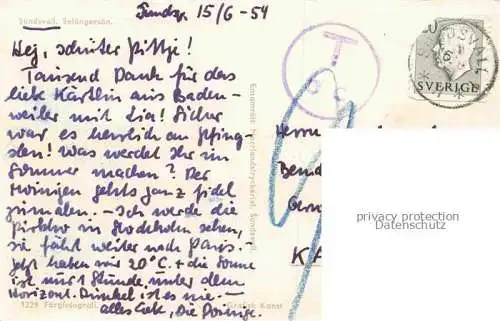 Sundsv. 15/6 - 54
Sundsvall. Selångersån.
Hej, schüter Pittje!
Tausend Dank für das
liebe Kärtlin aus Baden-
weiler mit Lia! Sicher
war es herrlich an Pfing-
sten! Was werdet Ihr im
Sommer machen? Der
gehts ganz fidel
- Ich werde die
in Stockholm sehen,
sie fährt weiter nach Paris. -
Jetzt haben wir 20°C. + die Sonne
ist nur 1 Stunde unter dem
Horizont. Dunkel ist es nie. -
alles Liebe, Die
1229 Färgfotografi.
Grafisk Konst
Ensamrätt
T
SUNDSVALL
SVERIGE
Herrn
privacy protection
Datenschutz